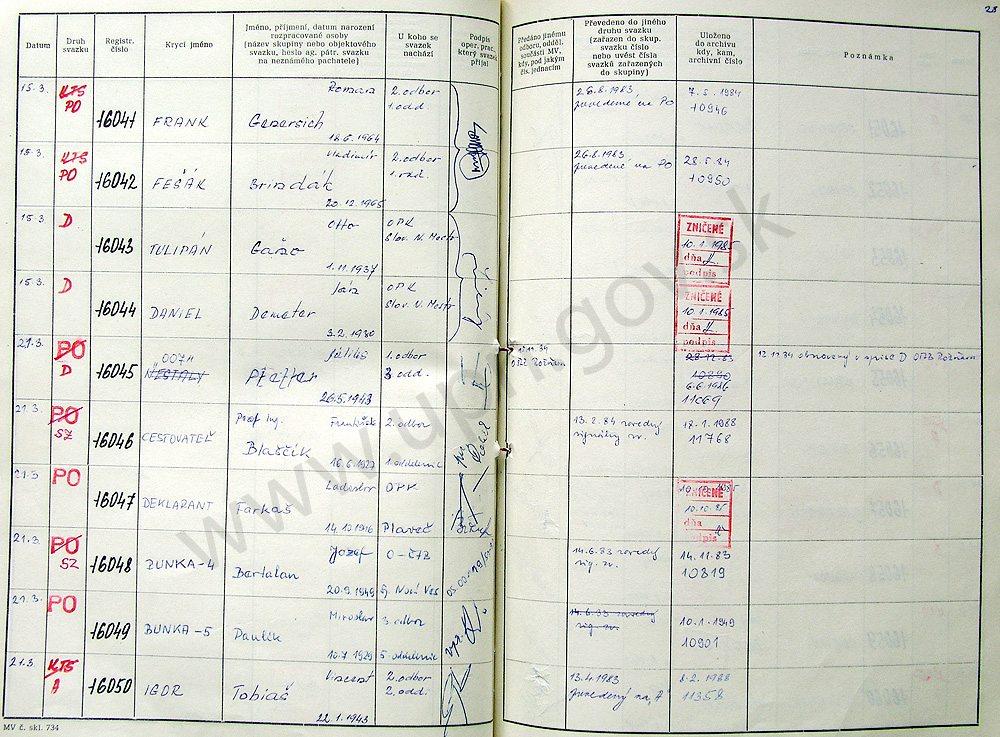 23
Datum
Druh svazku
Registr. číslo
Krycí jméno
Jméno, příjmení, datum narození
rozpracované osoby
(název skupiny nebo objektového
svazku, heslo ag. pátr. svazku
na neznámého pachatele)
U koho se
svazek
nachází
Podpis
oper. prac.,
který svazek
přijal
Předáno jinému
odboru, odděl.
součásti MV,
kdy, pod jakým
čís. jednacím
Převedeno do jiného
druhu svazku
(zařazen do skup.
svazku číslo
nebo uvést čísla
svazků zařazených
do skupiny)
Uloženo
do archivu
kdy, kam,
archivní číslo
Poznámka
15.3. KTS PO 16041 FRANK Roman 2. odbor 26.8.1983, 7.5.1984
Genersich 1. odd prevedené na PO 10946
18.6.1964
15.3. KTS PO 16042 FEŠÁK Vladimír 2. odbor 26.8.1983 28.5.84
Brindák prevedené na PO 10950
20.12.1965
15.3 D 16043 TULIPÁN Otto OPK ZNIČENÉ
Gažo Slov. N. Mesto 10.1.1985
1.11.1937 dňa
podpis
15.3. D 16044 DANIEL OPK ZNIČENÉ
Demeter Slov. N. Mesto 10.1.1985
3.2.1930 dňa
podpis
21.3. PO D 16045 007" Július 1. odbor 12.11.84 28.12.83 12.11.84 obnovený v spise D
NESTALY Pfeffer 3. odd. 10880
26.5.1943 6.6.1986
11069
21.3. PO SZ 16046 CESTOVATEĽ Prof. Ing. František 2. odbor 13.2.84 18.1.1988
Blaščík signálny zv. 11768
16.6.1927
21.3 PO 16047 DEKLARANT Ladislav OPK ZNIČENÉ
Farkaš 10.10.85
14.10.1916 Plaveč dňa
podpis
21.3. PO SZ 16048 BUNKA-4 Jozef 14.6.83 14.11.83
Bertalan sig. zv. 10819
20.9.1949 Sp. Nová Ves
21.3. PO 16049 BUNKA-5 Miroslav 3. odbor 14.6.83 10.1.1949
Paulík sig. zv. 10901
10.7.1929
21.3. KTS A 16050 IGOR Vincent 2. odbor 13.4.1983 8.2.1988
Tobiaš 2. odd. prevedený na „A" 11358
22.1.1943
MV č. skl. 734
www.upn.gov.sk